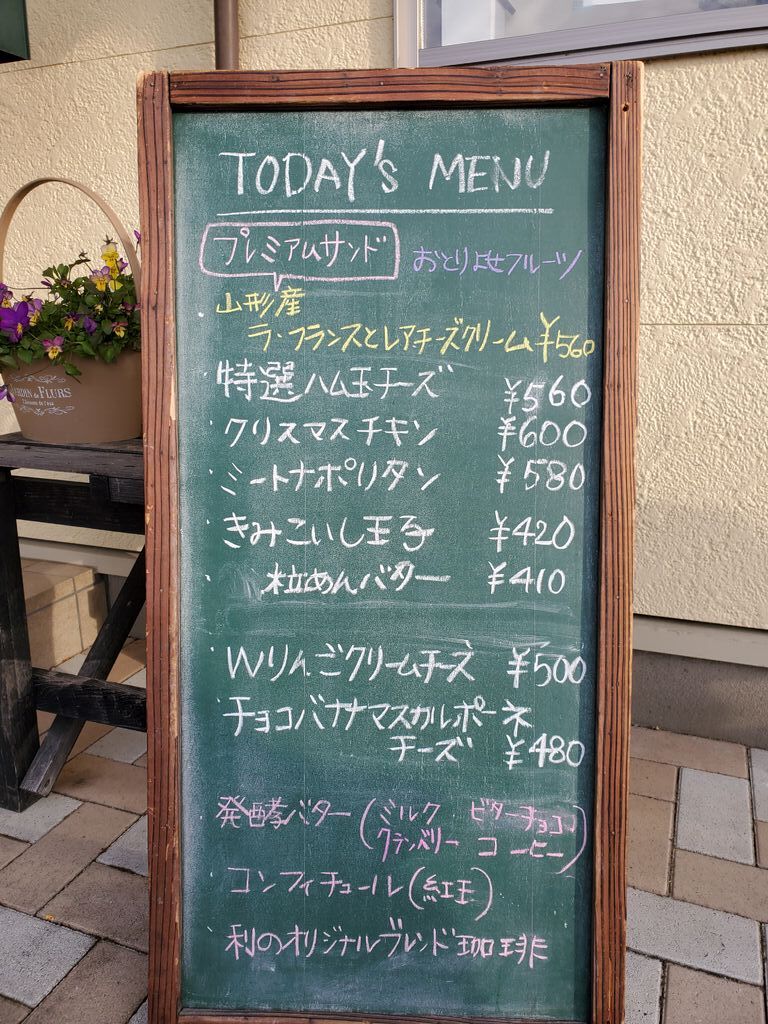 TODAY's MENU
プレミアムサンド おとりよせフルーツ
山形産
ラ・フランスとレアチーズクリーム ¥560
・特選ハム玉チーズ ¥560
・クリスマスチキン ¥600
・ミートナポリタン ¥580
・きみこいし玉子 ¥420
・粒あんバター ¥410
・Wりんごクリームチーズ ¥500
・チョコバナナマスカルポーネ
チーズ ¥480
・発酵バター(ミルク ビターチョコ
クランベリー コーヒー)
・コンフィチュール(紅玉)
・利のオリジナルブレンド珈琲
JARDIN de FLURS